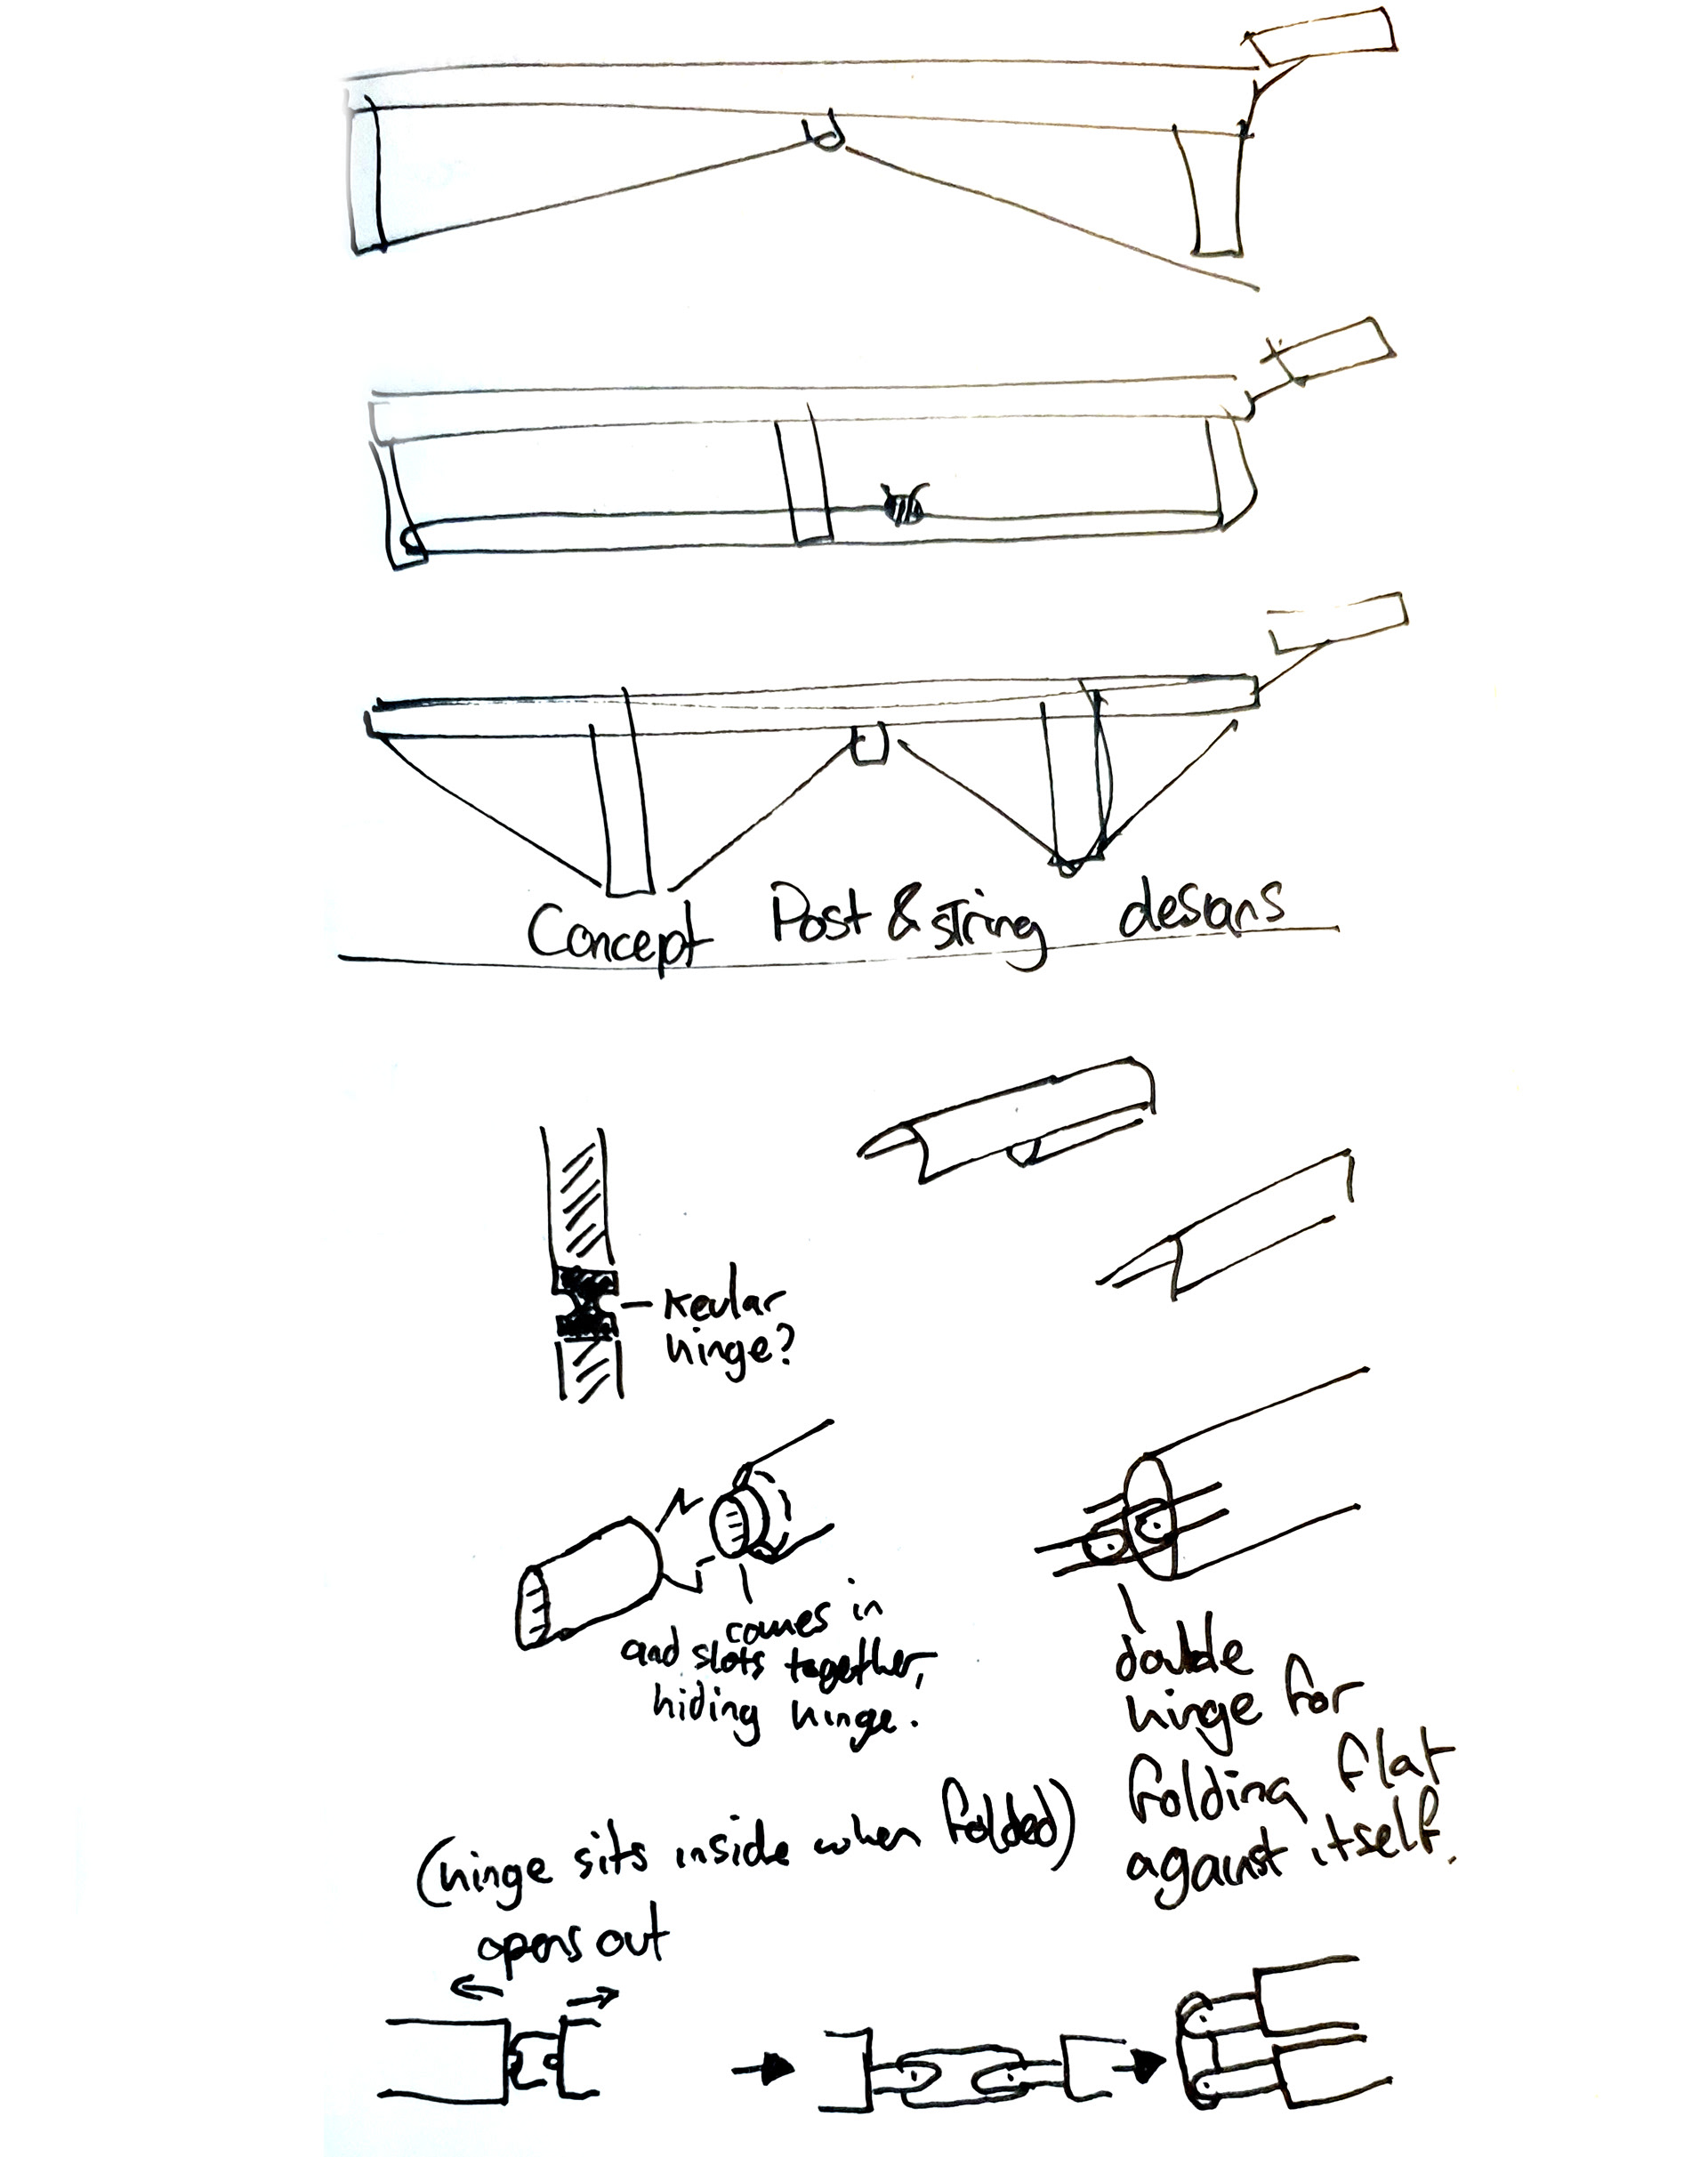 Concept Post & string designs
- Kevlar
hinge?
comes in
and slots together,
hiding hinge.
double
hinge for
folding flat
against itself.
(hinge sits inside when folded)
opens out